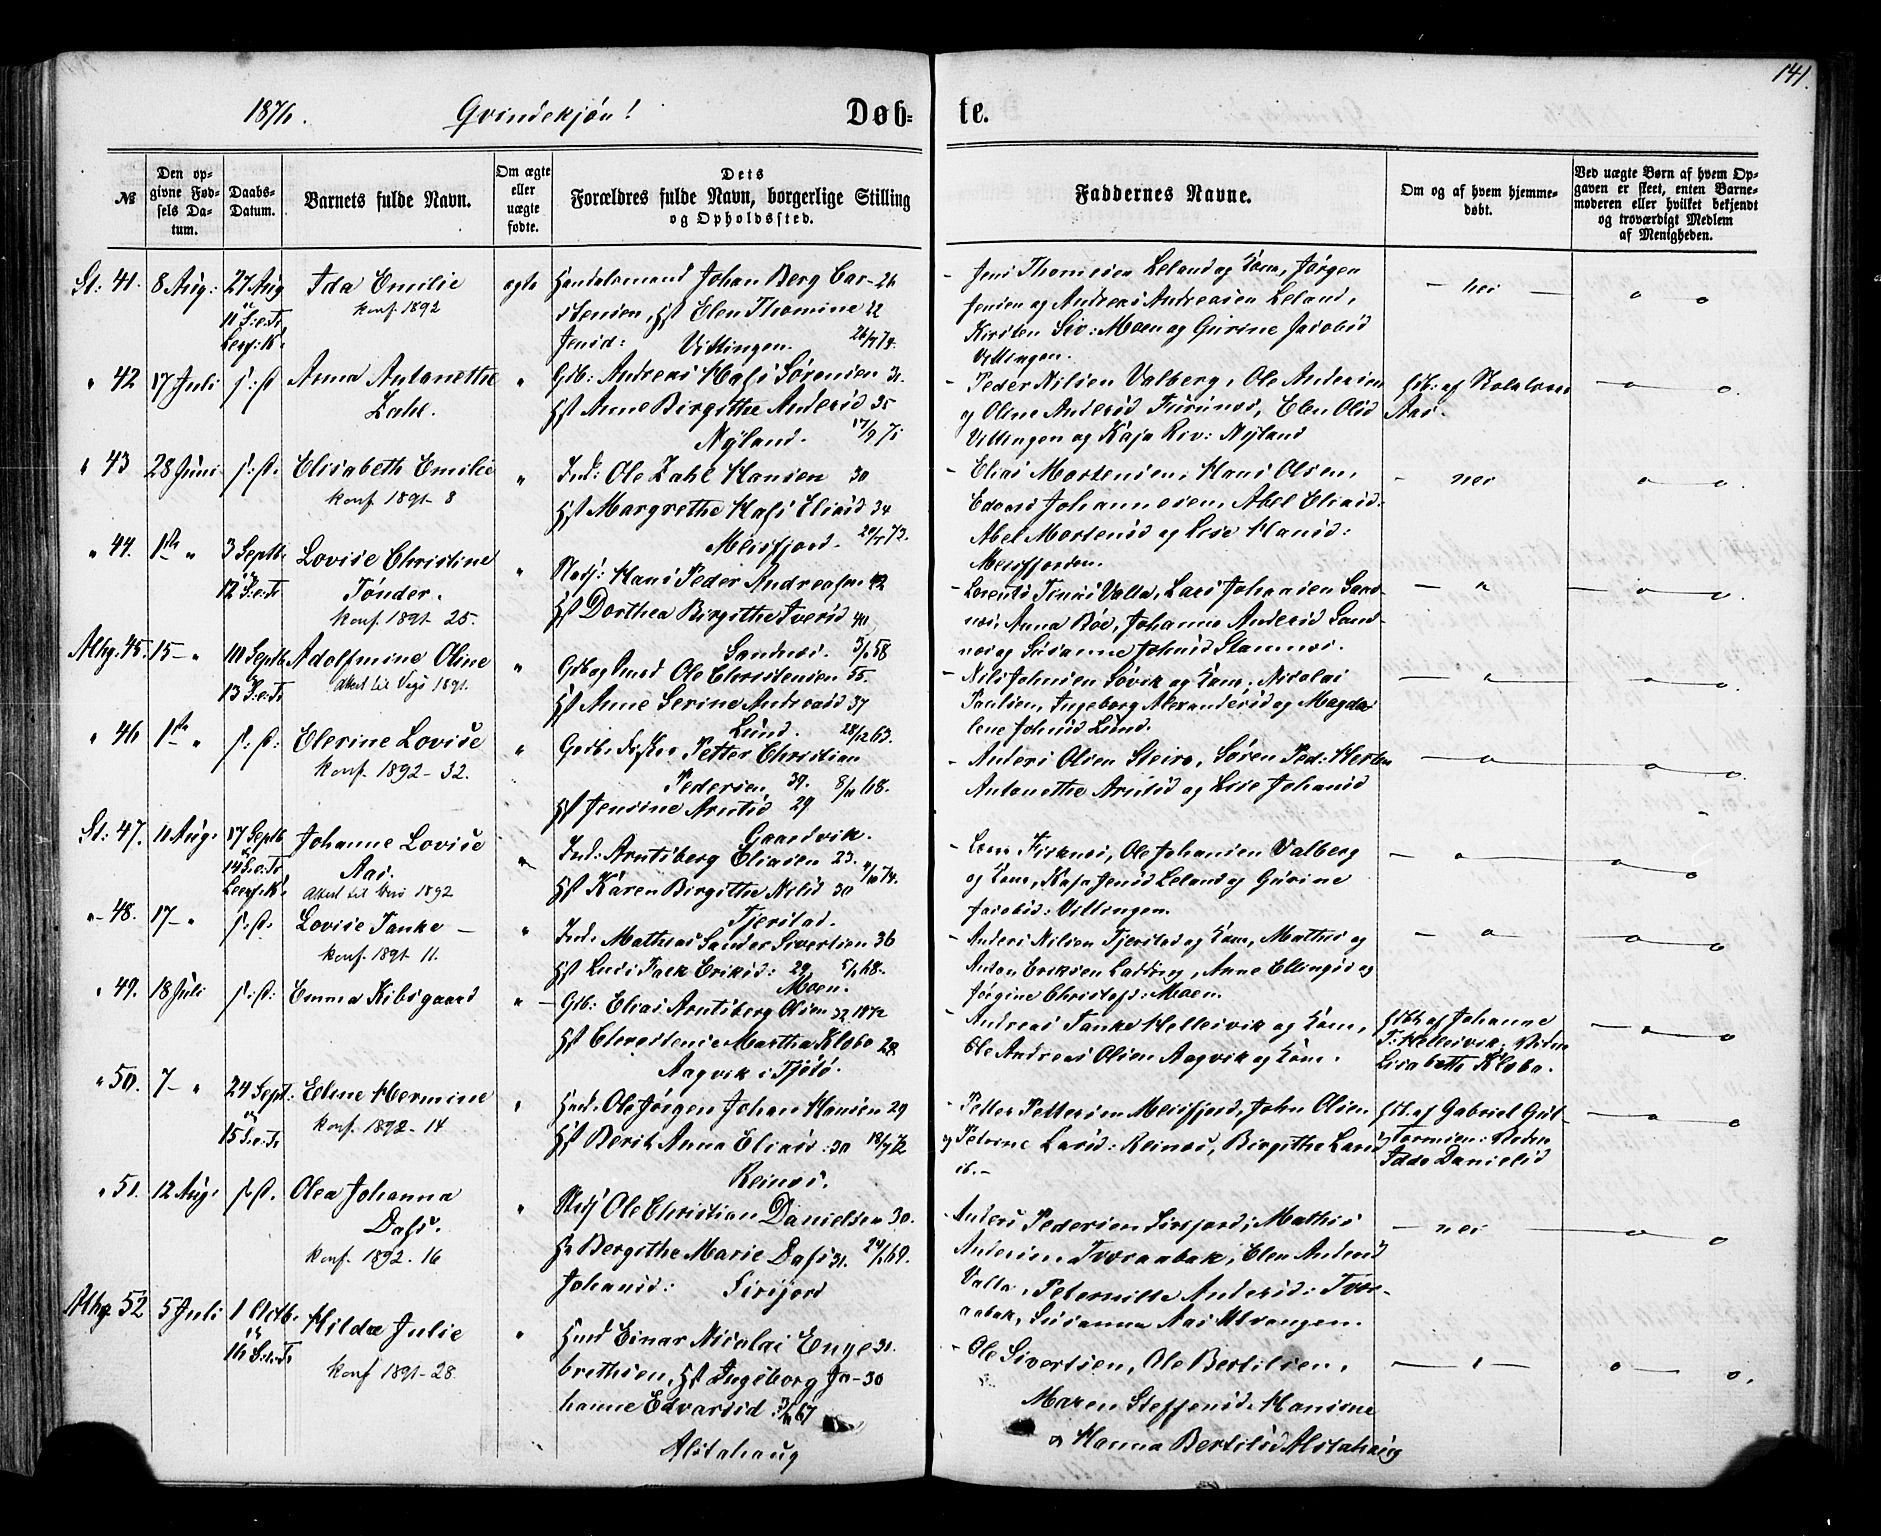 141.
1876. Qvindekjøn! Døb= te.
№
Den opgivne Fødsels Datum.
Daabs-Datum.
Barnets fulde Navn.
Om ægte eller uægte fødte.
Dets Forældres fulde Navn, borgerlige Stilling og Opholdssted.
Faddernes Navne.
Om og af hvem hjemmedøbt.
Ved uægte Børn af hvem Opgaven er skeet, enten Barnemoderen eller hvilket bekjendt og troværdigt Medlem af Menigheden.
St: 41. 8 Aug: 27 Aug
11 S.e.Tr.
Ida Emilie
Konf 1892
ægte
Handelsmand Johan Berg Car- 26
stensen, Hst Elen Thomine 22
Jensd: Vittingen. 26/7 74.
Jens Thomesen Leland og Kone, Jørgen
Jensen og Andreas Andreasen Leland,
Kirsten Siv: Moen og Gurine Jacobsd
Vittingen.
- nei - o o
" 42 17 Juli s: st
Anna Antonette
Zahl.
"
Gdb: Andreas Hass Sørensen 31.
Hst Anne Birgithe Andersd 35
Nyland. 17/9 71
Peder Nilsen Valberg, Ole Andersen
og Oline Andersd Furunes, Elen Olsd
Vittingen og Kaja Siv: Nyland
- o o.
" 43 28 Juni s: st.
Elisabeth Emilie
Konf 1891 8
"
Ind: Ole Zahl Hansen 30
Hst Margrethe Hass Eliasd 34
Meisfjord. 73.
Elias Mortensen, Hans Olsen,
Edvard Johannesen, Abel Eliasd:
Abel Mortensd og Lise Hansd:
Meisfjorden.
- nei o o.
" 44. 1ste " 3 Septb.
12 S.e.Tr
Lovise Christine
Tønder.
Konf 1891 25.
"
Hans Peder Andreasen 42
Hst Dorthea Birgithe Iversd 40
Sandnes. 58
Lars Johansen Sand-
nes, Anna Bøe, Johanna Andersd Sand-
nes og Susanne Johnsd Stamnes.
- " - o o.
Alhg. 45. 15- " 10 Septb
13 S.e.Tr
Adolfmine Oline
Attest til Vegø 1891.
"
Ole Christensen 55.
Hst Anne Serine Andreasd 37
Lund. 28/12 63.
Nils Johnsen Søvik og Kone, Nicolai
Paulsen, Ingeborg Alexandersd og Magda-
lene Johnsd Lund.
- o o.
" 46 1ste " s: st:
Elerine Lovise
Konf. 1892 - 32.
"
Petter Christian
Pedersen 37. 68.
Hst Jensine Arntsd 29
Grandvik.
Anders Olsen Steiro, Søren Ped:
Antonette Arntsd og Lise Johansd
- o - o o.
St: 47. 11 Aug: 17 Septb
14 S.e.Tr
Johanne Lovise
Aas.
Attest til 1892
"
Ind: Arntsberg Eliasen 23.
Hst Karen Birgithe Nilsd 30 74.
Tjerstad.
Ole Johansen Valberg
og Kone, Kaja Jensd Leland og Gurine
Jacobsd: Vittingen.
- o - o o
" 48. 17- " s: st.
Lovise Tanke -
Konf. 1891 11.
"
Ind: Mathias Sander Sivertsen 36
Hst Eriksd: 29 68.
Moen.
Anders Nilsen Tjerstad og Kone, Mathis og
Anton Eriksen Ladding, Anne Ellingsd og
Jørgine Christofs: Moen.
- o - o o
" 49. 18 Juli s: st:
Emma Kibsgaard
"
Gdb: Elias Arntsberg Olsen 32 1872
Hst Martha Klobo 28
Aagvik i Tjøtø.
Andreas Tanke Hellesvik og Kone,
Ole Andreas Olsen Aagvik og Kone.
Hdbt af Johanne
T: Hellesvik,
Lisabeth Klobo.
- o o
" 50. 7- " 24 Sept:
15 S.e.Tr
Edine Hermine
Konf. 1892 - 14
"
Ole Jørgen Johan Hansen 29
Hst Berit Anna Eliasd: 30 18/7 72
Reines.
Petter Pettersen Meisfjord, John Olsen
og Petrine Larsd: Reines, Birgithe Larsd
Hdbt. af Gabriel Gut-
tormsen:
Danielsd
- o o
" 51. 12 Aug: s. st.
Olea Johanna
Dass.
Konf. 1892. 16
"
Ole Christian Danielsen 30.
Bergithe Marie Dass 31. 69.
Johansd: Sirijord
Anders Pedersen Sirijord, Mathis
Andersen Tveraabak, Elen Andersd
Valla, Peternille Andersd: Tver-
aabak, Susanna Aas Alvangen.
- nei o o
Alhg 52 5 Juli 1 Octb.
16 S.e.Tr
Hilda Julie
Konf 1891 - 28.
"
Einar Nicolai Enge- 31.
brethsen, Hst Ingeborg Jo- 30
hanne Edvardsd 67
Alstahaug
Ole Sivertsen, Ole Bertilsen,
Maren Steffensd
og Hanna Bertilsd Alstahaug
- " - o o.